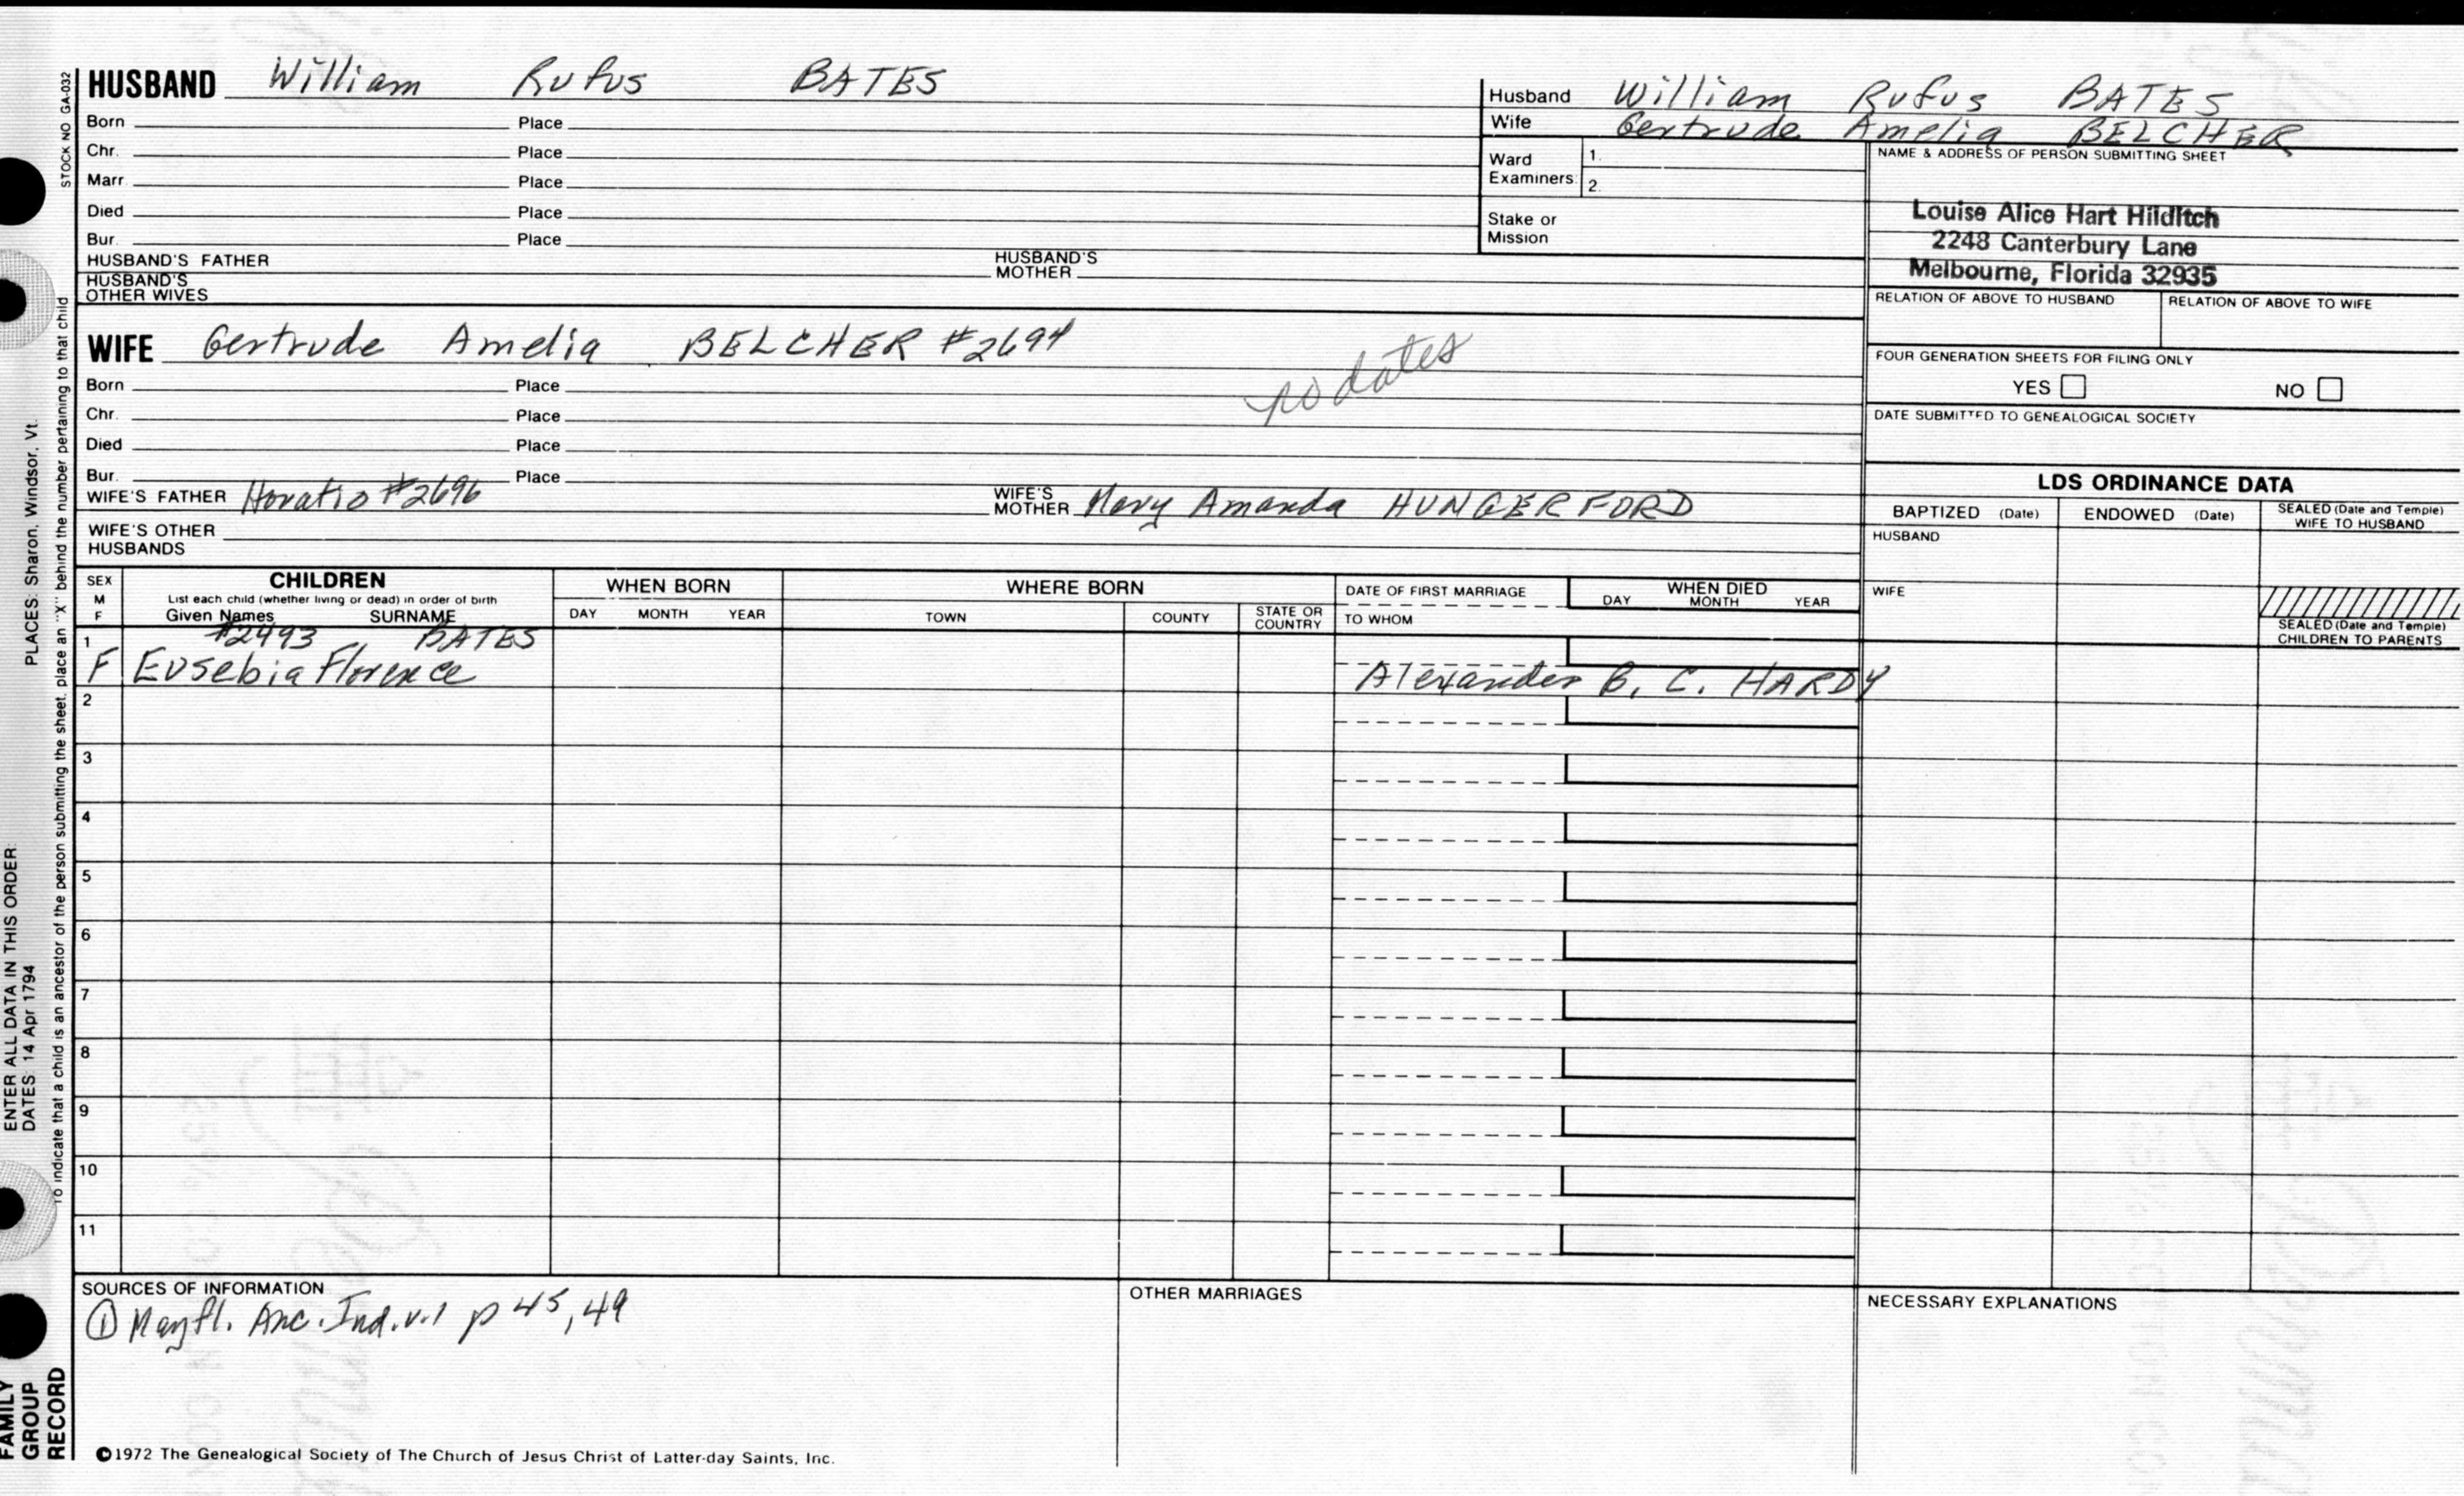 HUSBAND William Rufus BATES
Born Place
Chr. Place
Marr. Place
Died Place
Bur. Place
HUSBAND'S FATHER HUSBAND'S MOTHER
HUSBAND'S OTHER WIVES
Husband William Rufus BATES
Wife Gertrude Amelia BELCHER
Ward Examiners: 1.
2.
Stake or Mission
NAME & ADDRESS OF PERSON SUBMITTING SHEET
Louise Alice Hart Hilditch
2248 Canterbury Lane
Melbourne, Florida 32935
RELATION OF ABOVE TO HUSBAND RELATION OF ABOVE TO WIFE
FOUR GENERATION SHEETS FOR FILING ONLY
YES NO
DATE SUBMITTED TO GENEALOGICAL SOCIETY
WIFE Gertrude Amelia BELCHER #2694
no dates
Born Place
Chr. Place
Died Place
Bur. Place
WIFE'S FATHER Horatio #2696 WIFE'S MOTHER Mary Amanda HUNGERFORD
WIFE'S OTHER HUSBANDS
LDS ORDINANCE DATA
BAPTIZED (Date) ENDOWED (Date) SEALED (Date and Temple) WIFE TO HUSBAND
HUSBAND
WIFE
SEALED (Date and Temple) CHILDREN TO PARENTS
SEX M F
CHILDREN
List each child (whether living or dead) in order of birth
Given Names SURNAME
WHEN BORN
DAY MONTH YEAR
WHERE BORN
TOWN COUNTY STATE OR COUNTRY
DATE OF FIRST MARRIAGE
TO WHOM
WHEN DIED
DAY MONTH YEAR
1 #2493 BATES
F Eusebia Florence Alexander B. C. HARDY
2
3
4
5
6
7
8
9
10
11
SOURCES OF INFORMATION
① Mayfl. Anc. Ind. v.1 p 45, 49
OTHER MARRIAGES
NECESSARY EXPLANATIONS
©1972 The Genealogical Society of The Church of Jesus Christ of Latter-day Saints, Inc.
STOCK NO GA-032
To indicate that a child is an ancestor of the person submitting the sheet, place an "X" behind the number pertaining to that child
PLACES: Sharon, Windsor, Vt.
ENTER ALL DATA IN THIS ORDER:
DATES: 14 Apr 1794
FAMILY
GROUP
RECORD